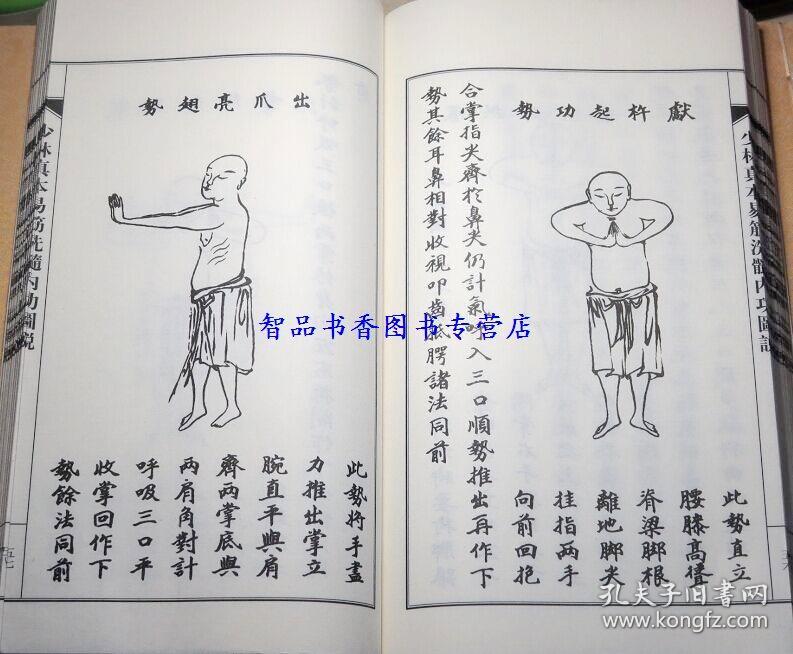 少林真本易筋洗髓内功圖說
五六
獻杵起功勢
此勢直立
腰膝高
脊梁脚根
離地脚尖
挂指兩手
向前回抱
合掌指尖齊於鼻尖仍計氣呼入三口順勢推出再作下
勢其餘耳鼻相對收視叩齒抵腭諸法同前
出爪亮翅勢
此勢將手盡
力推出掌立
腕直平與肩
齊兩掌底與
兩肩角對計
呼吸三口平
收掌回作下
勢餘法同前
少林真本易筋洗髓内功圖說
五七
智品书香图书专营店
孔夫子旧书网
www.kongfz.com